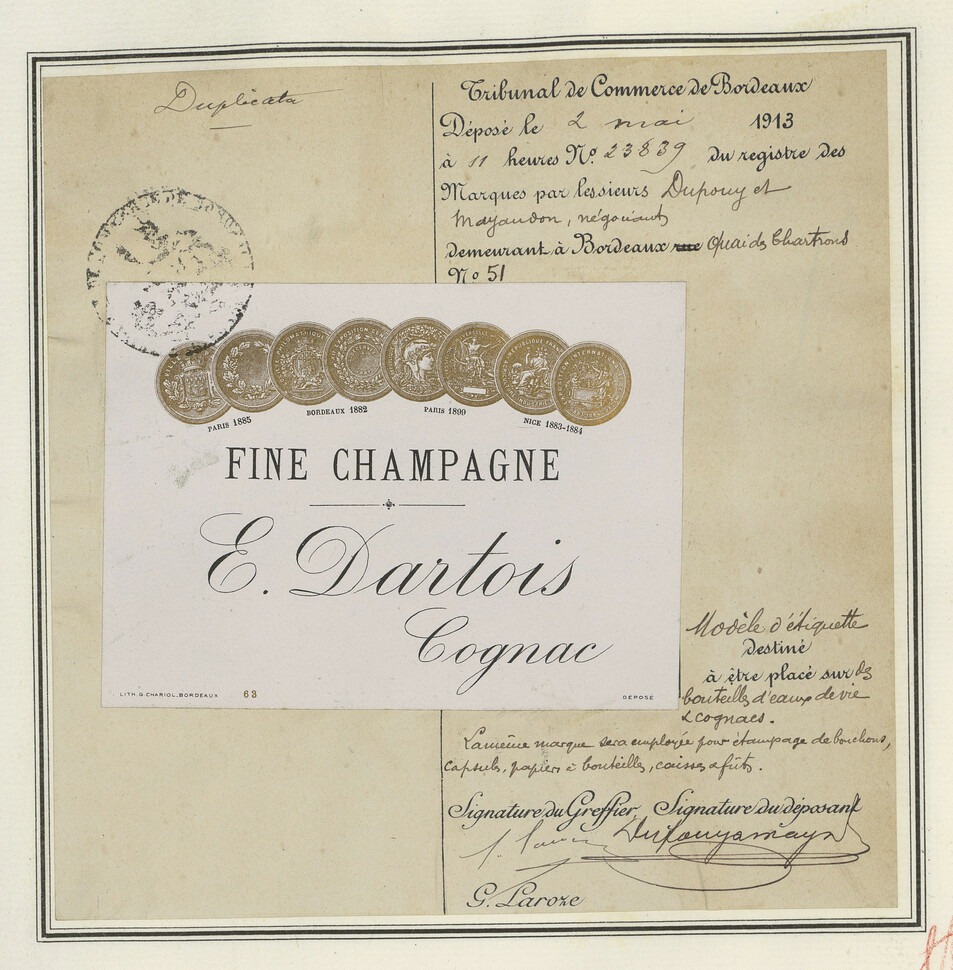 Duplicata
Tribunal de Commerce de Bordeaux
Déposé le 2 mai 1913
à 11 heures No. 23839 du registre des
Marques par les sieurs Dupouy et
Mayaudon, négociants
demeurant à Bordeaux rue Quai des Chartrons
No 51
PARIS 1885
BORDEAUX 1882
PARIS 1899
NICE 1883-1884
FINE CHAMPAGNE
E. Dartois
Cognac
LITH. G. CHARIOL, BORDEAUX
63
DÉPOSÉ
Modèle d'étiquette
destiné
à être placé sur des
bouteilles d'eaux de vie
& cognacs.
La même marque sera employée pour étampage de bouchons,
capsules, papiers à bouteilles, caisses & fûts.
Signature du Greffier, Signature du déposant
G. Laroze